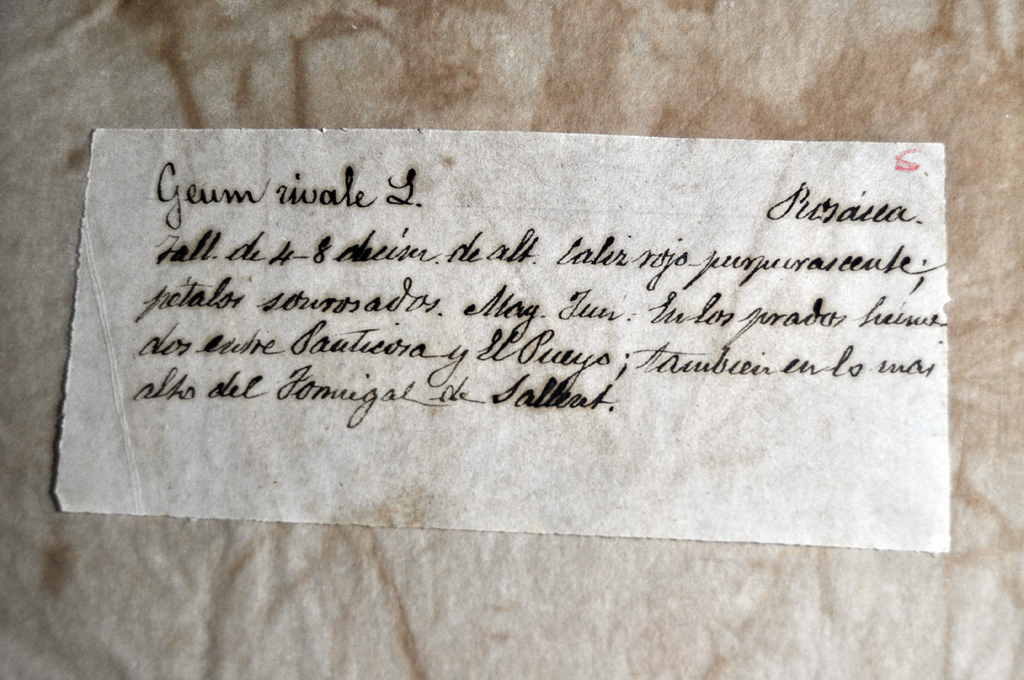 S.
Geum rivale L. Rosácea.
Tall. de 4-8 decím. de alt. Caliz rojo-purpurascente;
pétalos sonrosados. May. Jun. En los prados húme-
dos entre Panticosa y El Pueyo; también en lo mas
alto del Formigal de Sallent.